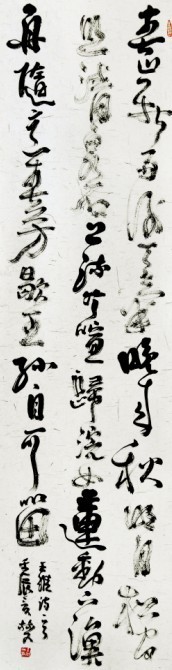 空山新雨後天氣晚來秋明月松間
照清泉石上流竹喧歸浣女蓮動下漁
舟隨意春芳歇王孫自可留
王維詩